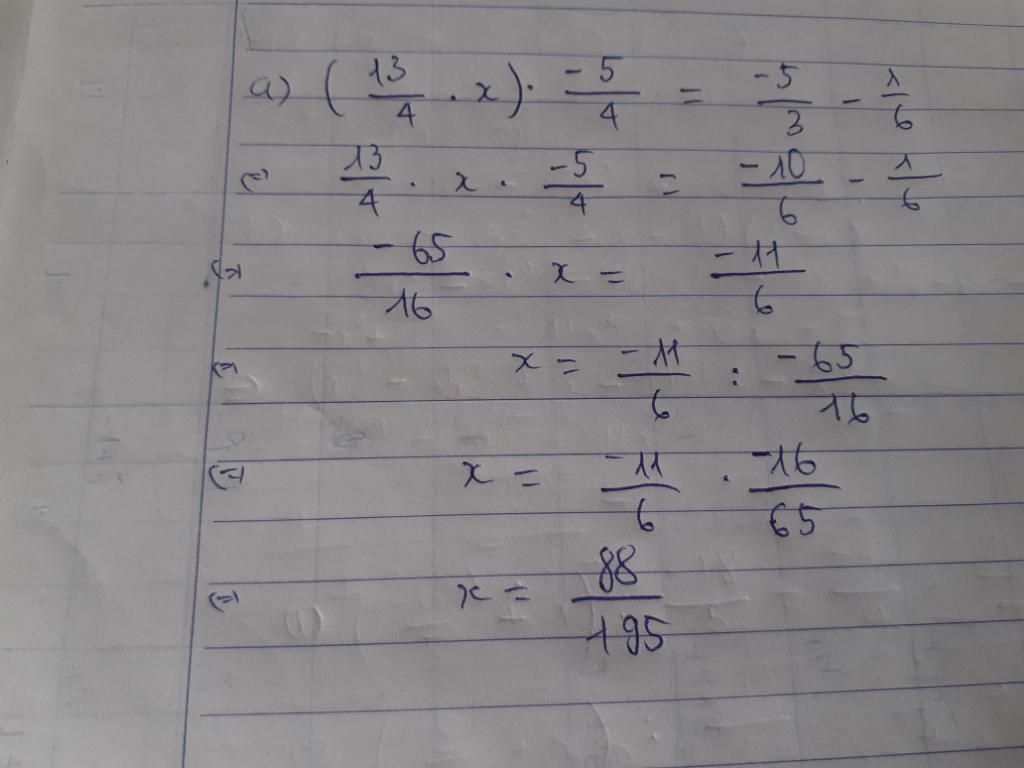 a) ( 13/4 . x ) . -5/4 = -5/3 - 1/6
(=) 13/4 . x . -5/4 = -10/6 - 1/6
(=) -65/16 . x = -11/6
(=) x = -11/6 : -65/16
(=) x = -11/6 . -16/65
(=) x = 88/195